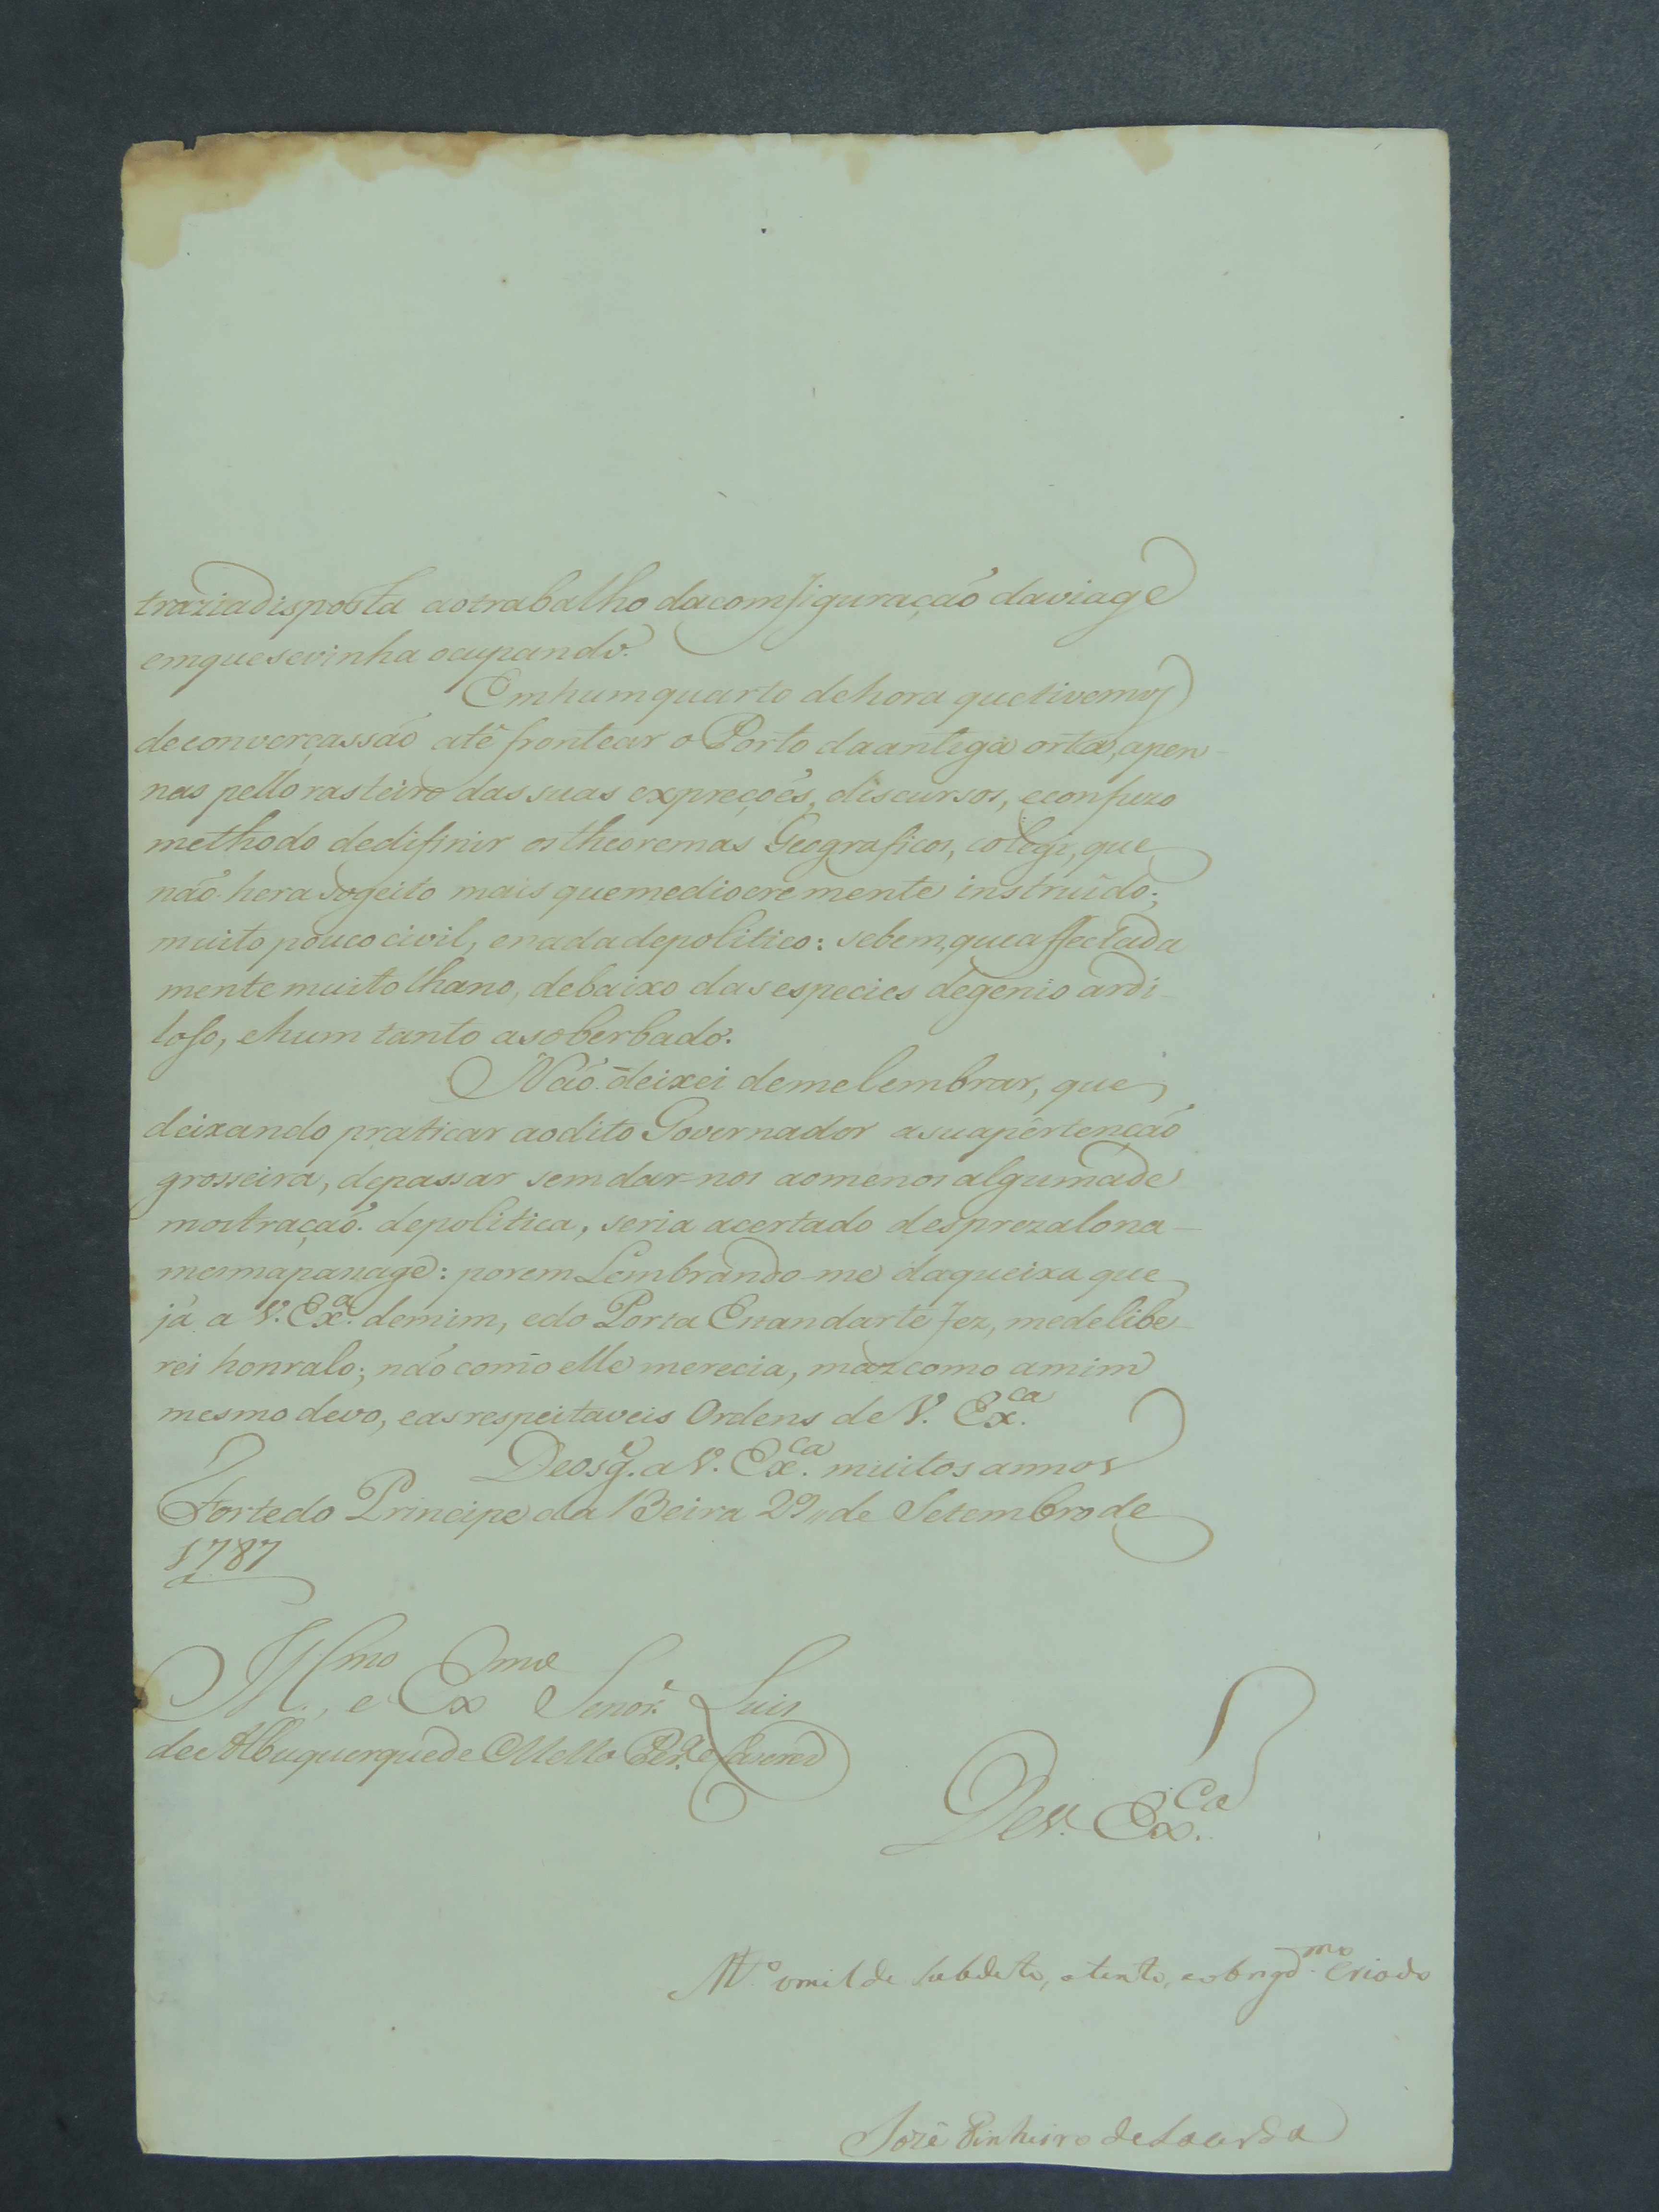 trazia disposta ao trabalho da comfiguração da viage
em que se vinha ocupando.
Em hum quarto de hora que tivemos
de converçassão atê frontear o Porto da antiga orta, apen-
nas pello rasteiro das suas expreçoẽs, discursos, e confuzo
methodo de difinir os theoremas Geograficos, colegi, que
não hera sogeito mais que mediocremente instruido;
muito pouco civil, e nada de politico: se bem, que affectada
mente muito lhano, debaixo das especies de genio ardi-
loso, e hum tanto asoberbado.
Não deixei de me lembrar, que
deixando praticar ao dito Governador a sua pertenção
grosseira, de passar sem dar-nos ao menos alguma de
mostração de politica, seria acertado desprezalo na
mesma panage: porem Lembrando-me da queixa que
já a V. Ex.ª de mim, e do Porta Estandarte fez, me delibe-
rei honralo; não como elle merecia, maz como a mim
mesmo devo, e as respeitaveis Ordens de V. Ex.ca
Deos g.e a V. Ex.ca muitos annos
Forte do Principe da Beira 29 de Setembro de
1787
Ill.mo, e Ex.mo Senor. Luis
de Albuquerque de Mello Per.ª e Caceres
De V. Ex.ca
M.to omilde subdito, atento, e obrigd.mo Criado
Jozê Pinheiro de Lacerda